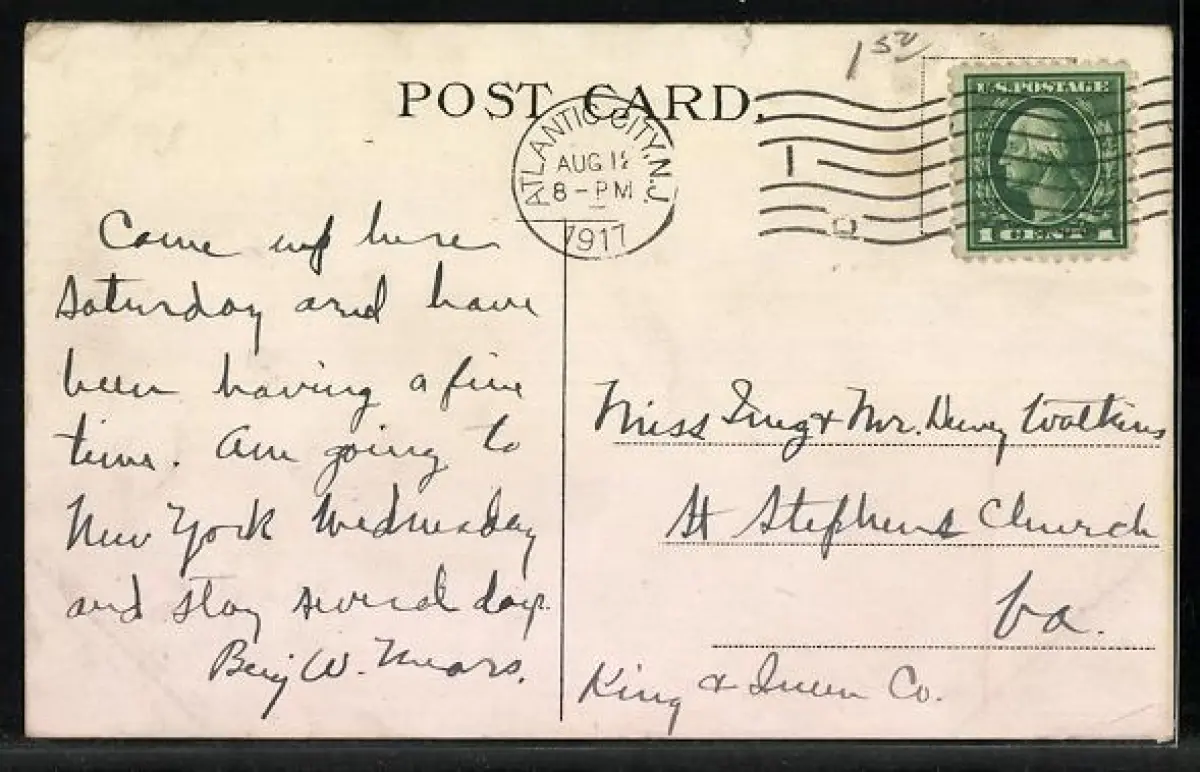 1 50
POST CARD.
ATLANTIC CITY, N.J.
AUG
8-PM
1917
1
U.S. POSTAGE
1 CENT 1
Come up here
Saturday and have
been having a fine
time. Am going to
New York Wednesday
and stay several days.
Benj W. Mears.
Miss & Mr. Dewey Watkins
St Stephens Church
Va.
King & Queen Co.